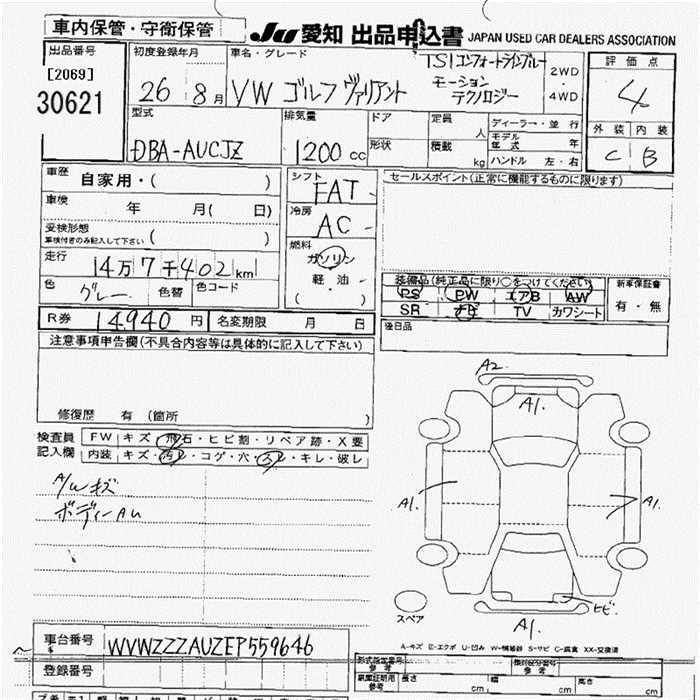 車内保管・守衛保管
JU 愛知 出品申込書 JAPAN USED CAR DEALERS ASSOCIATION
出品番号
[2069]
30621
初度登録年月
26 8月
車名・グレード
VW ゴルフ ヴァリアント
TSI コンフォートラインブルー
モーション
テクノロジー
2WD
4WD
評価点
4
外装 内装
C B
型式
DBA-AUCJZ
排気量
1200cc
ドア
形状
定員
人
積載
kg
ディーラー・並行
モデル年式 年
ハンドル 左・右
車歴
自家用・( )
車検
年 月( 日)
受検形態
車検付きのみ記入して下さい ( )
走行
14万7千402km
色 グレー 色替 色コード
シフト
FAT
冷房
AC
燃料
ガソリン
軽・油
( ・ )
セールスポイント(正常に機能するものに限ります)
装備品(純正品に限り○をつけてください)
PS PW エアB AW
SR ナビ TV カワシート
新車保証書
有・無
後日品
R券 14,940円 名変期限 月 日
注意事項申告欄(不具合内容等は具体的に記入して下さい)
修復歴 有 (箇所 )
検査員
記入欄
FW キズ・飛石・ヒビ割・リペア跡・X要
内装 キズ・汚レ・コゲ・穴・スレ・キレ・破レ
A/W キズ
ボディーAU
A2
A1.
A1.
A1.
ヒビ
スペア
A1.
A-キズ E-エクボ U-凹み W-補修跡 S-サビ C-腐食 XX-交換済
車台番号 WVWZZZAUZEP559646
登録番号
形式指定番号
参考
類別区分番号
参考
車庫証明用
参考
長さ cm
幅 cm
高さ cm